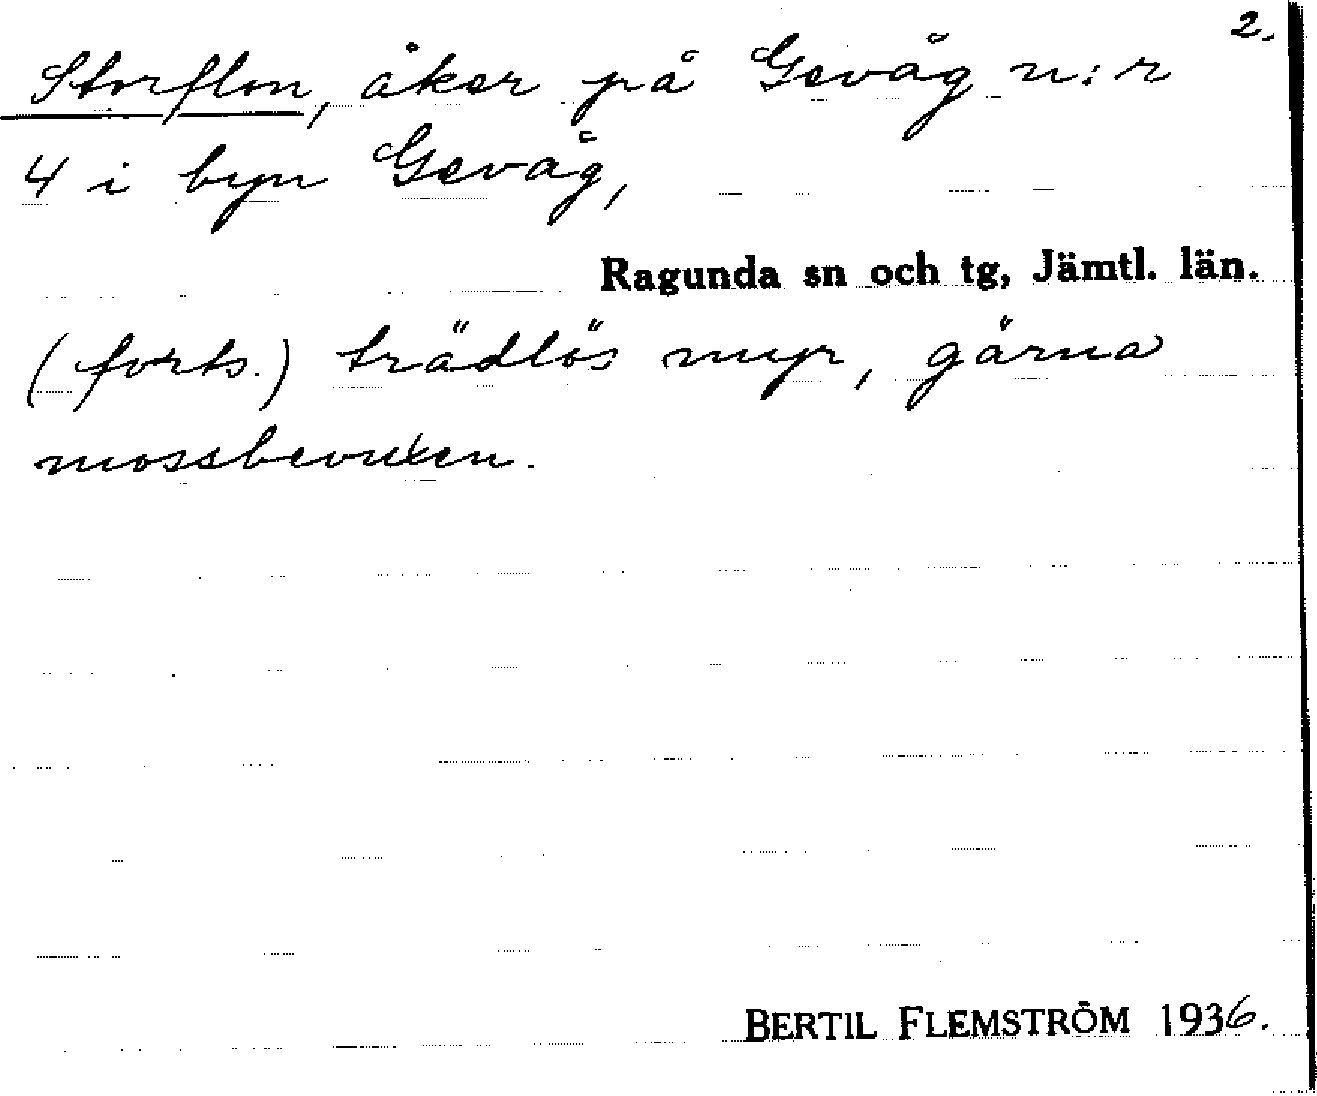 2.
Storflon, åker på Gevåg n:r
4 i byn Gevåg,
Ragunda sn och tg, Jämtl. län.
(forts.) trädlös myr, gärna
mossbevuxen.
BERTIL FLEMSTRÖM 1936.